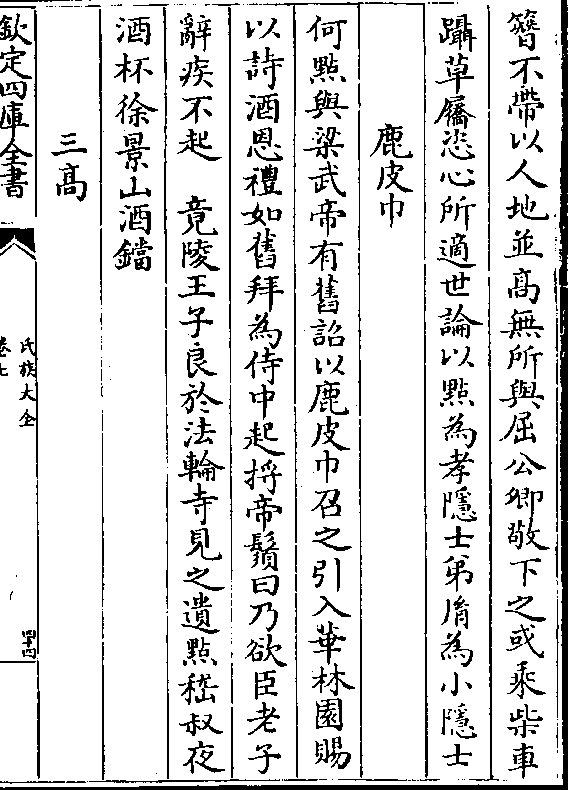 簪不帶以人地並高無所與屈公卿敬下之或乘柴車
躡草屩恣心所適世論以點為孝隱士弟胤為小隱士
鹿皮巾
何點與梁武帝有舊詔以鹿皮巾召之引入華林園賜
以詩酒恩禮如舊拜為侍中起捋帝鬚曰乃欲臣老子
辭疾不起　竟陵王子良於法輪寺見之遺點嵇叔夜
酒杯徐景山酒鐺
三高
欽定四庫全書
氏族大全
卷七
四十四